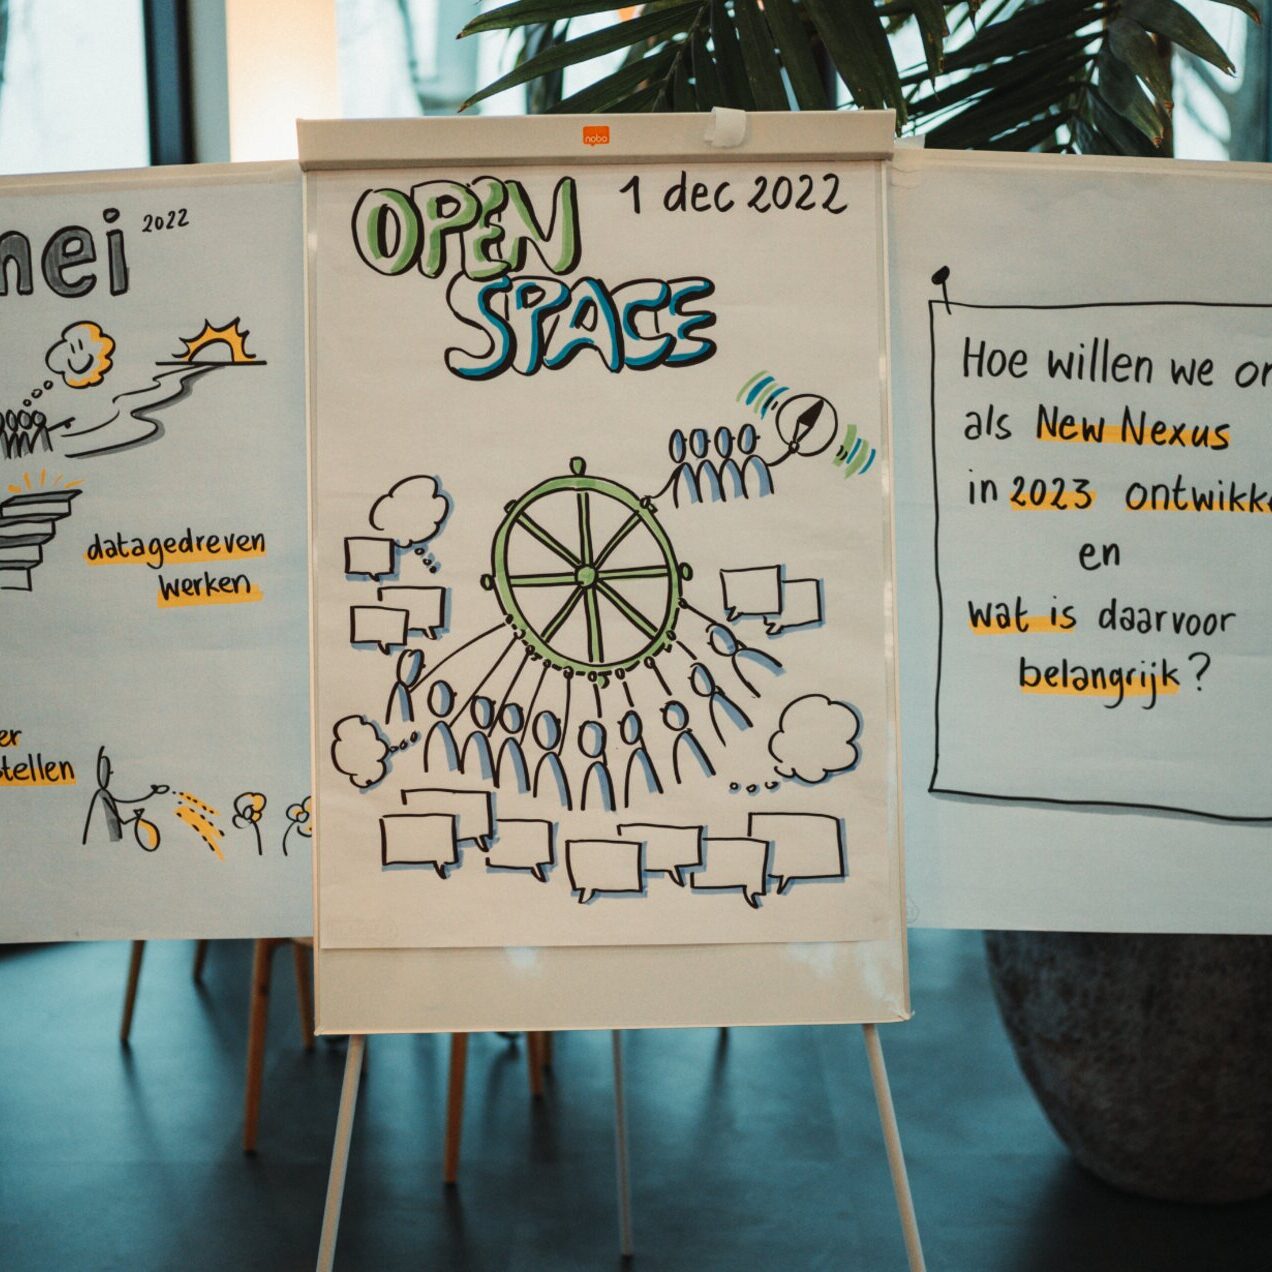 mei 2022
datagedreven
werken
nobo
OPEN
SPACE
1 dec 2022
Hoe willen we
als New Nexus
in 2023
en
wat is daarvoor
belangrijk?